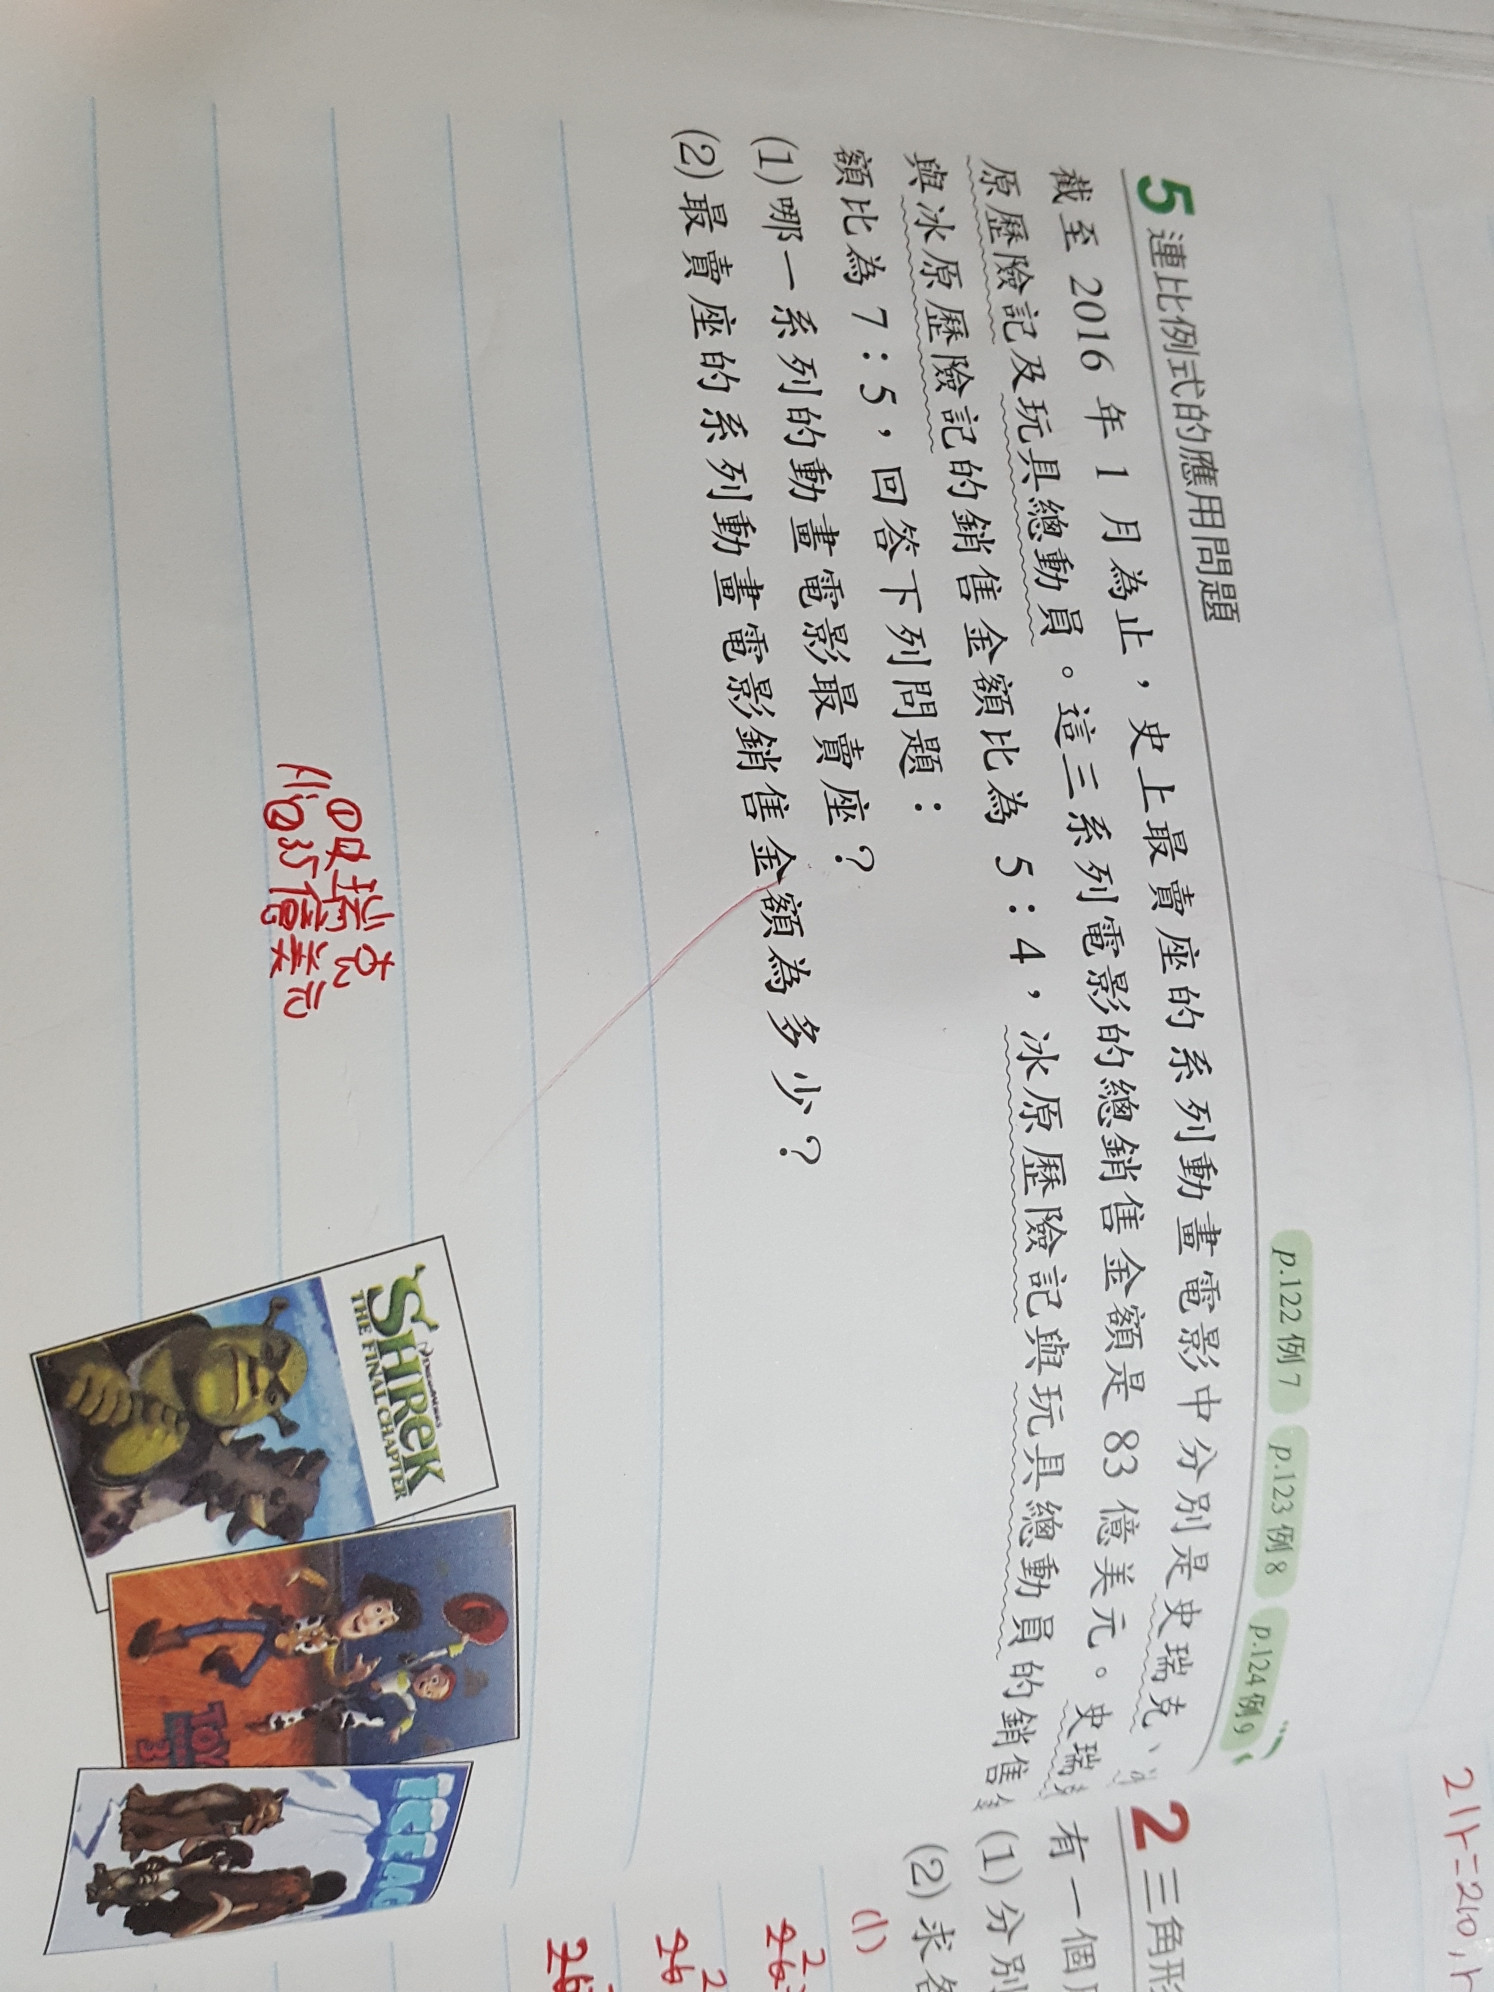 5 連比例式的應用問題
p.122 例 7 p.123 例 8 p.124 例 9
截至 2016 年 1 月為止，史上最賣座的系列動畫電影中分別是史瑞克、
原歷險記及玩具總動員。這三系列電影的總銷售金額是 83 億美元。史瑞
與冰原歷險記的銷售金額比為 5：4，冰原歷險記與玩具總動員的銷售
額比為 7：5，回答下列問題：
(1)哪一系列的動畫電影最賣座？
(2)最賣座的系列動畫電影銷售金額為多少？
①史瑞克
②35億美元
DREAMWORKS
SHREK
THE FINAL CHAPTER
TOY
3
ICE AG
2 三角形
有一個
(1)分別
(2)求各
(1)